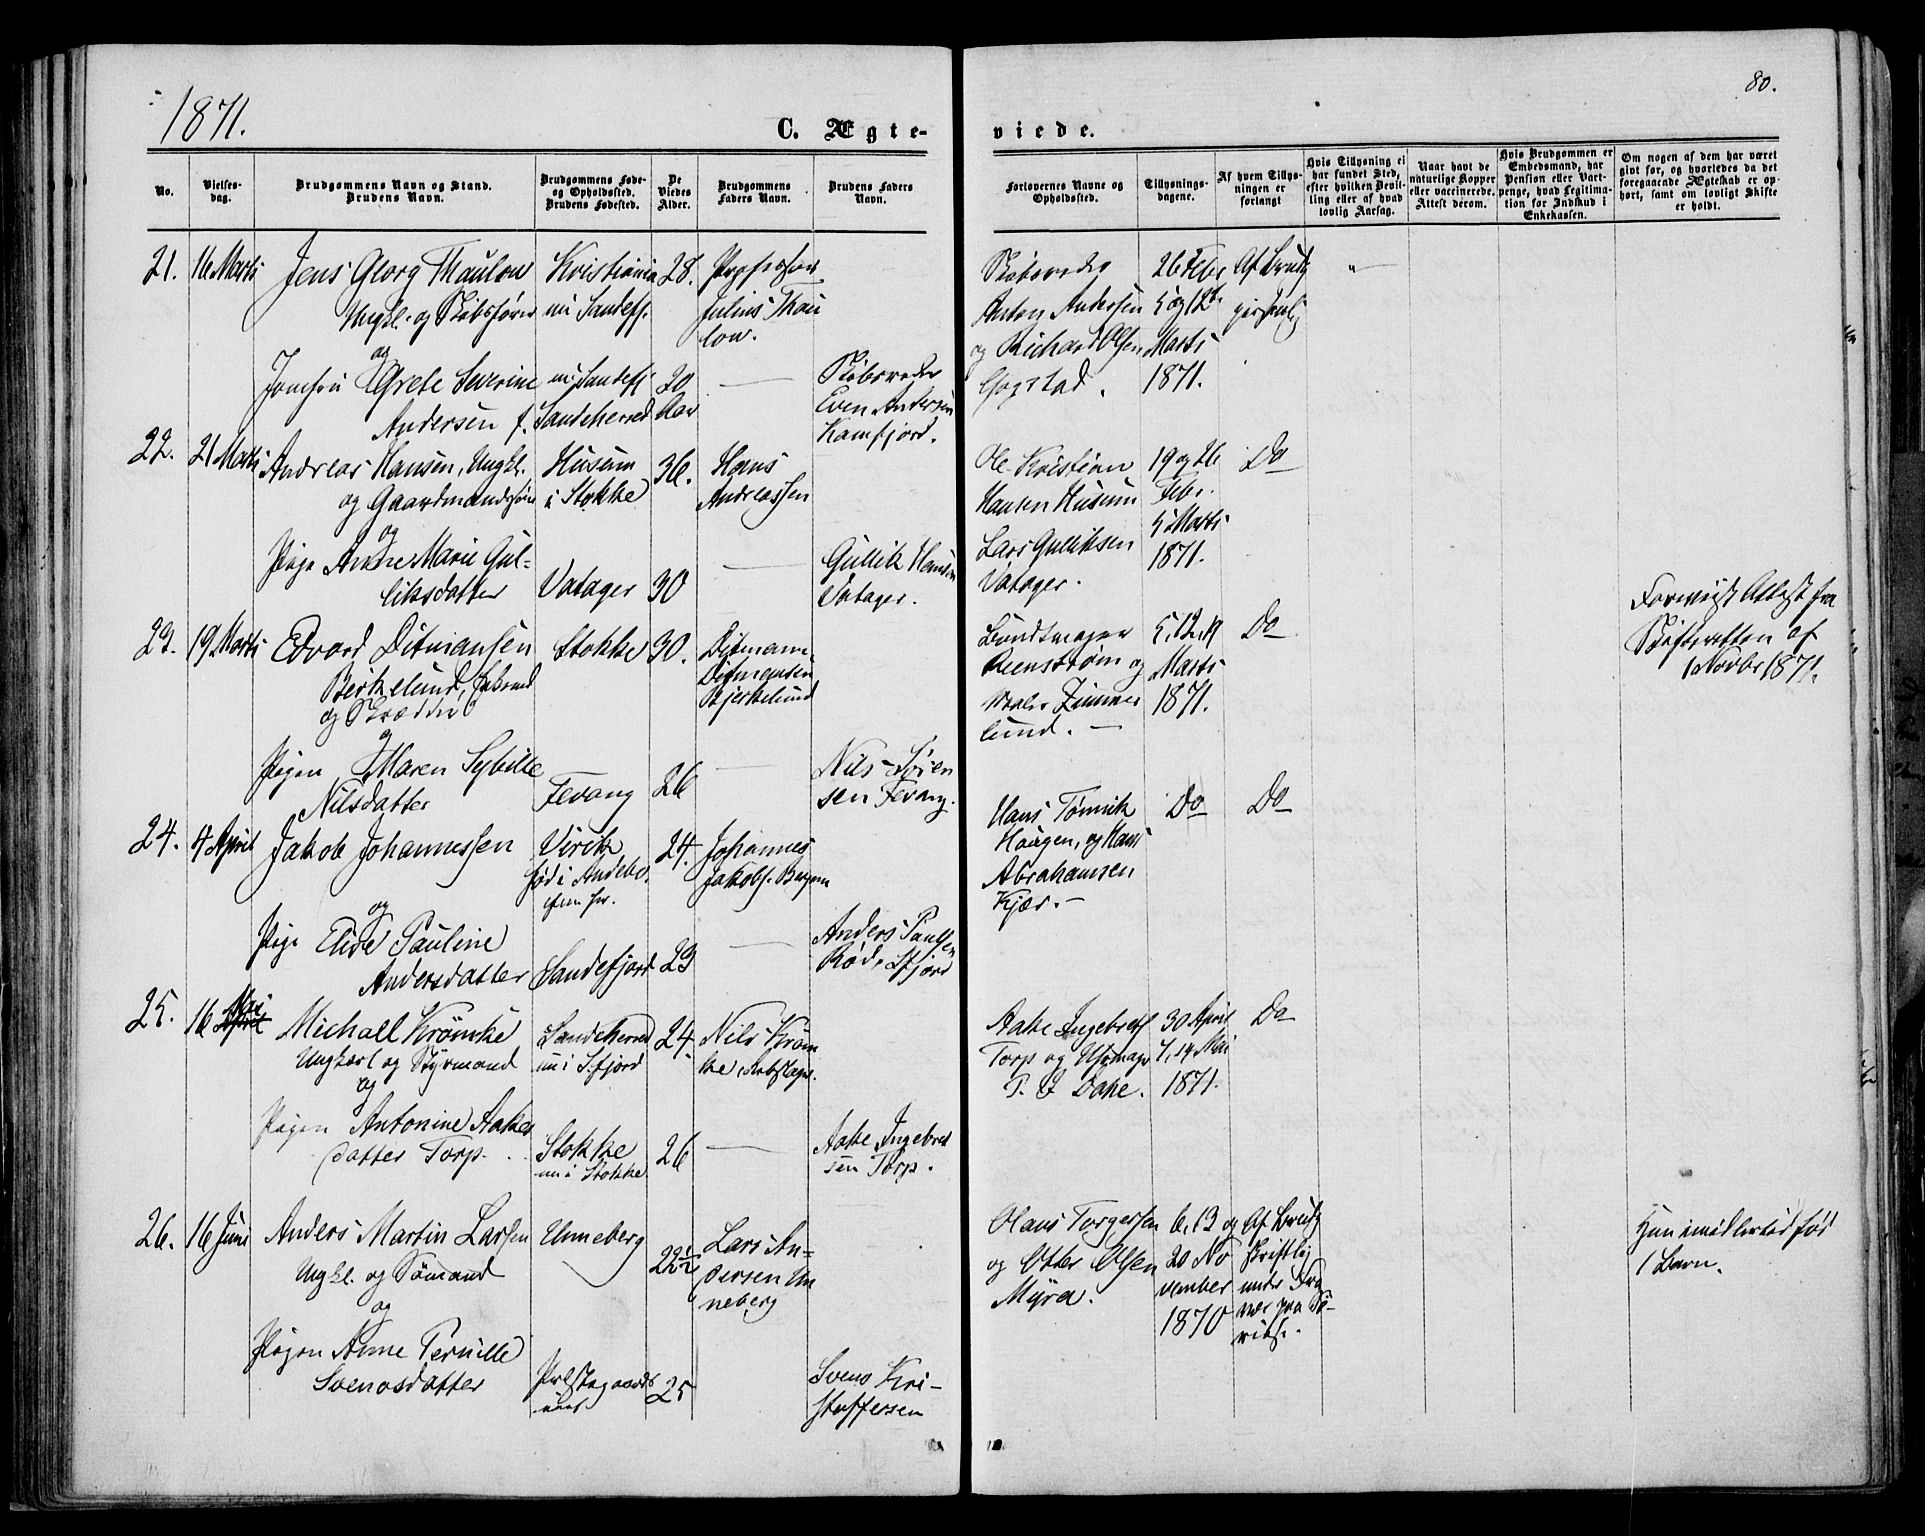 1871.
80.
C. Ægte-
viede.
No.
Vielses-
dag.
Brudgommens Navn og Stand.
Brudens Navn.
Brudgommens Føde-
og Opholdssted.
Brudens Fødested.
De
Viedes
Alder.
Brudgommens
Faders Navn.
Brudens Faders
Navn.
Forlovernes Navne og
Opholdssted.
Tillysnings-
dagene.
Af hvem Tillys-
ningen er
forlangt
Hvis Tillysning ei
har fundet Sted,
efter hvilken Bevil-
ling eller af hvad
lovlig Aarsag.
Naar havt de
naturlige Kopper
eller vaccinerede.
Attest derom.
Hvis Brudgommen er
Embedsmand, har
Pension eller Vart-
penge, hvad Legitima-
tion for Indskud i
Enkekassen.
Om nogen af dem har været
givt før, og hvorledes da det
foregaaende Ægteskab er op-
hørt, samt om lovligt Skifte
er holdt.
21.
16 Marts
Jens Georg Thaulow
Ungkl. og Skibsfører
og
Jomfru Grete Severine
Andersen f.
Kristiania
nu Sandefj.
nu Sandefj
Sandeherred
28.
20
Aar
Professor
Julius Thau
low.
Skibsreder
Even Andersen
Kamfjord.
Skibsreder
Anton Andersen
og Richard Olsen
Gogstad.
26 Febr
5 og 12te
Marts
1871.
Af Brudg
personlig
22.
21 Marts
Andreas Hansen, Ungkl.
og Gaardmandssøn
og
Pige Anne Marie Gul-
liksdatter
Husum
i Stokke
Vatager
36.
30
Hans
Andreassen
Gullik Hansen
Vatager.
Ole Kristian
Hansen Husum
Lars Gulliksen
Vatager.
19 og 26
Febr.
5 Marts
1871.
Do
23.
19 Marts
Edvard Ditmansen
Berkelund,
og Skrædder
og
Pigen Maren Sybille
Nilsdatter
Stokke
Fevang
30.
26
Ditman
Ditmansen
Bjerkelund
Nils Søren
sen Fevang.
Bundtmager
Reenstrøm og
Zimmer
lund.
5, 12, 19
Marts
1871.
Do
Forevist Attest fra
Skifteretten af
1 Novbr 1871.
24.
4 April
Jakob Johannessen
og
Pige Elise Pauline
Andersdatter
Virik
fød i Andebo
Sandefjord
24.
23
Johannes
Jakobs.
Anders Paulsen
Rød, Sfjord
Hans Tømik
Haugen, og Hans
Abrahamsen
Kjær.
Do
Do
25.
16 Mai
Michall Krömcke
Ungkarl og Styrmand
og
Pigen Antonine Aakes
datter Torp.
Sandeherred
nu i Sfjord
Stokke
nu i Stokke
24.
26
Nils Kröm
cke,
Aake Ingebret
sen Torp.
Aake Ingebretss
Torp og Uhrmager
P. J Dahl.
30 April
7, 14 Mai
1871.
Do
26.
16 Juni
Anders Martin Larsen
Ungkl. og Sømand
og
Pigen Anne Pernille
Svenosdatter
Unneberg
Præstegaards
22½
25
Lars An-
dersen Un
neberg
Svens Kri-
stoffersen
Olaus Torgersen
og Otter Olsen
Myra.
6, 13 og
20 No
vember
1870
Af Brudg
skriftlig
under
Hun imidlertid fød
1 Barn.